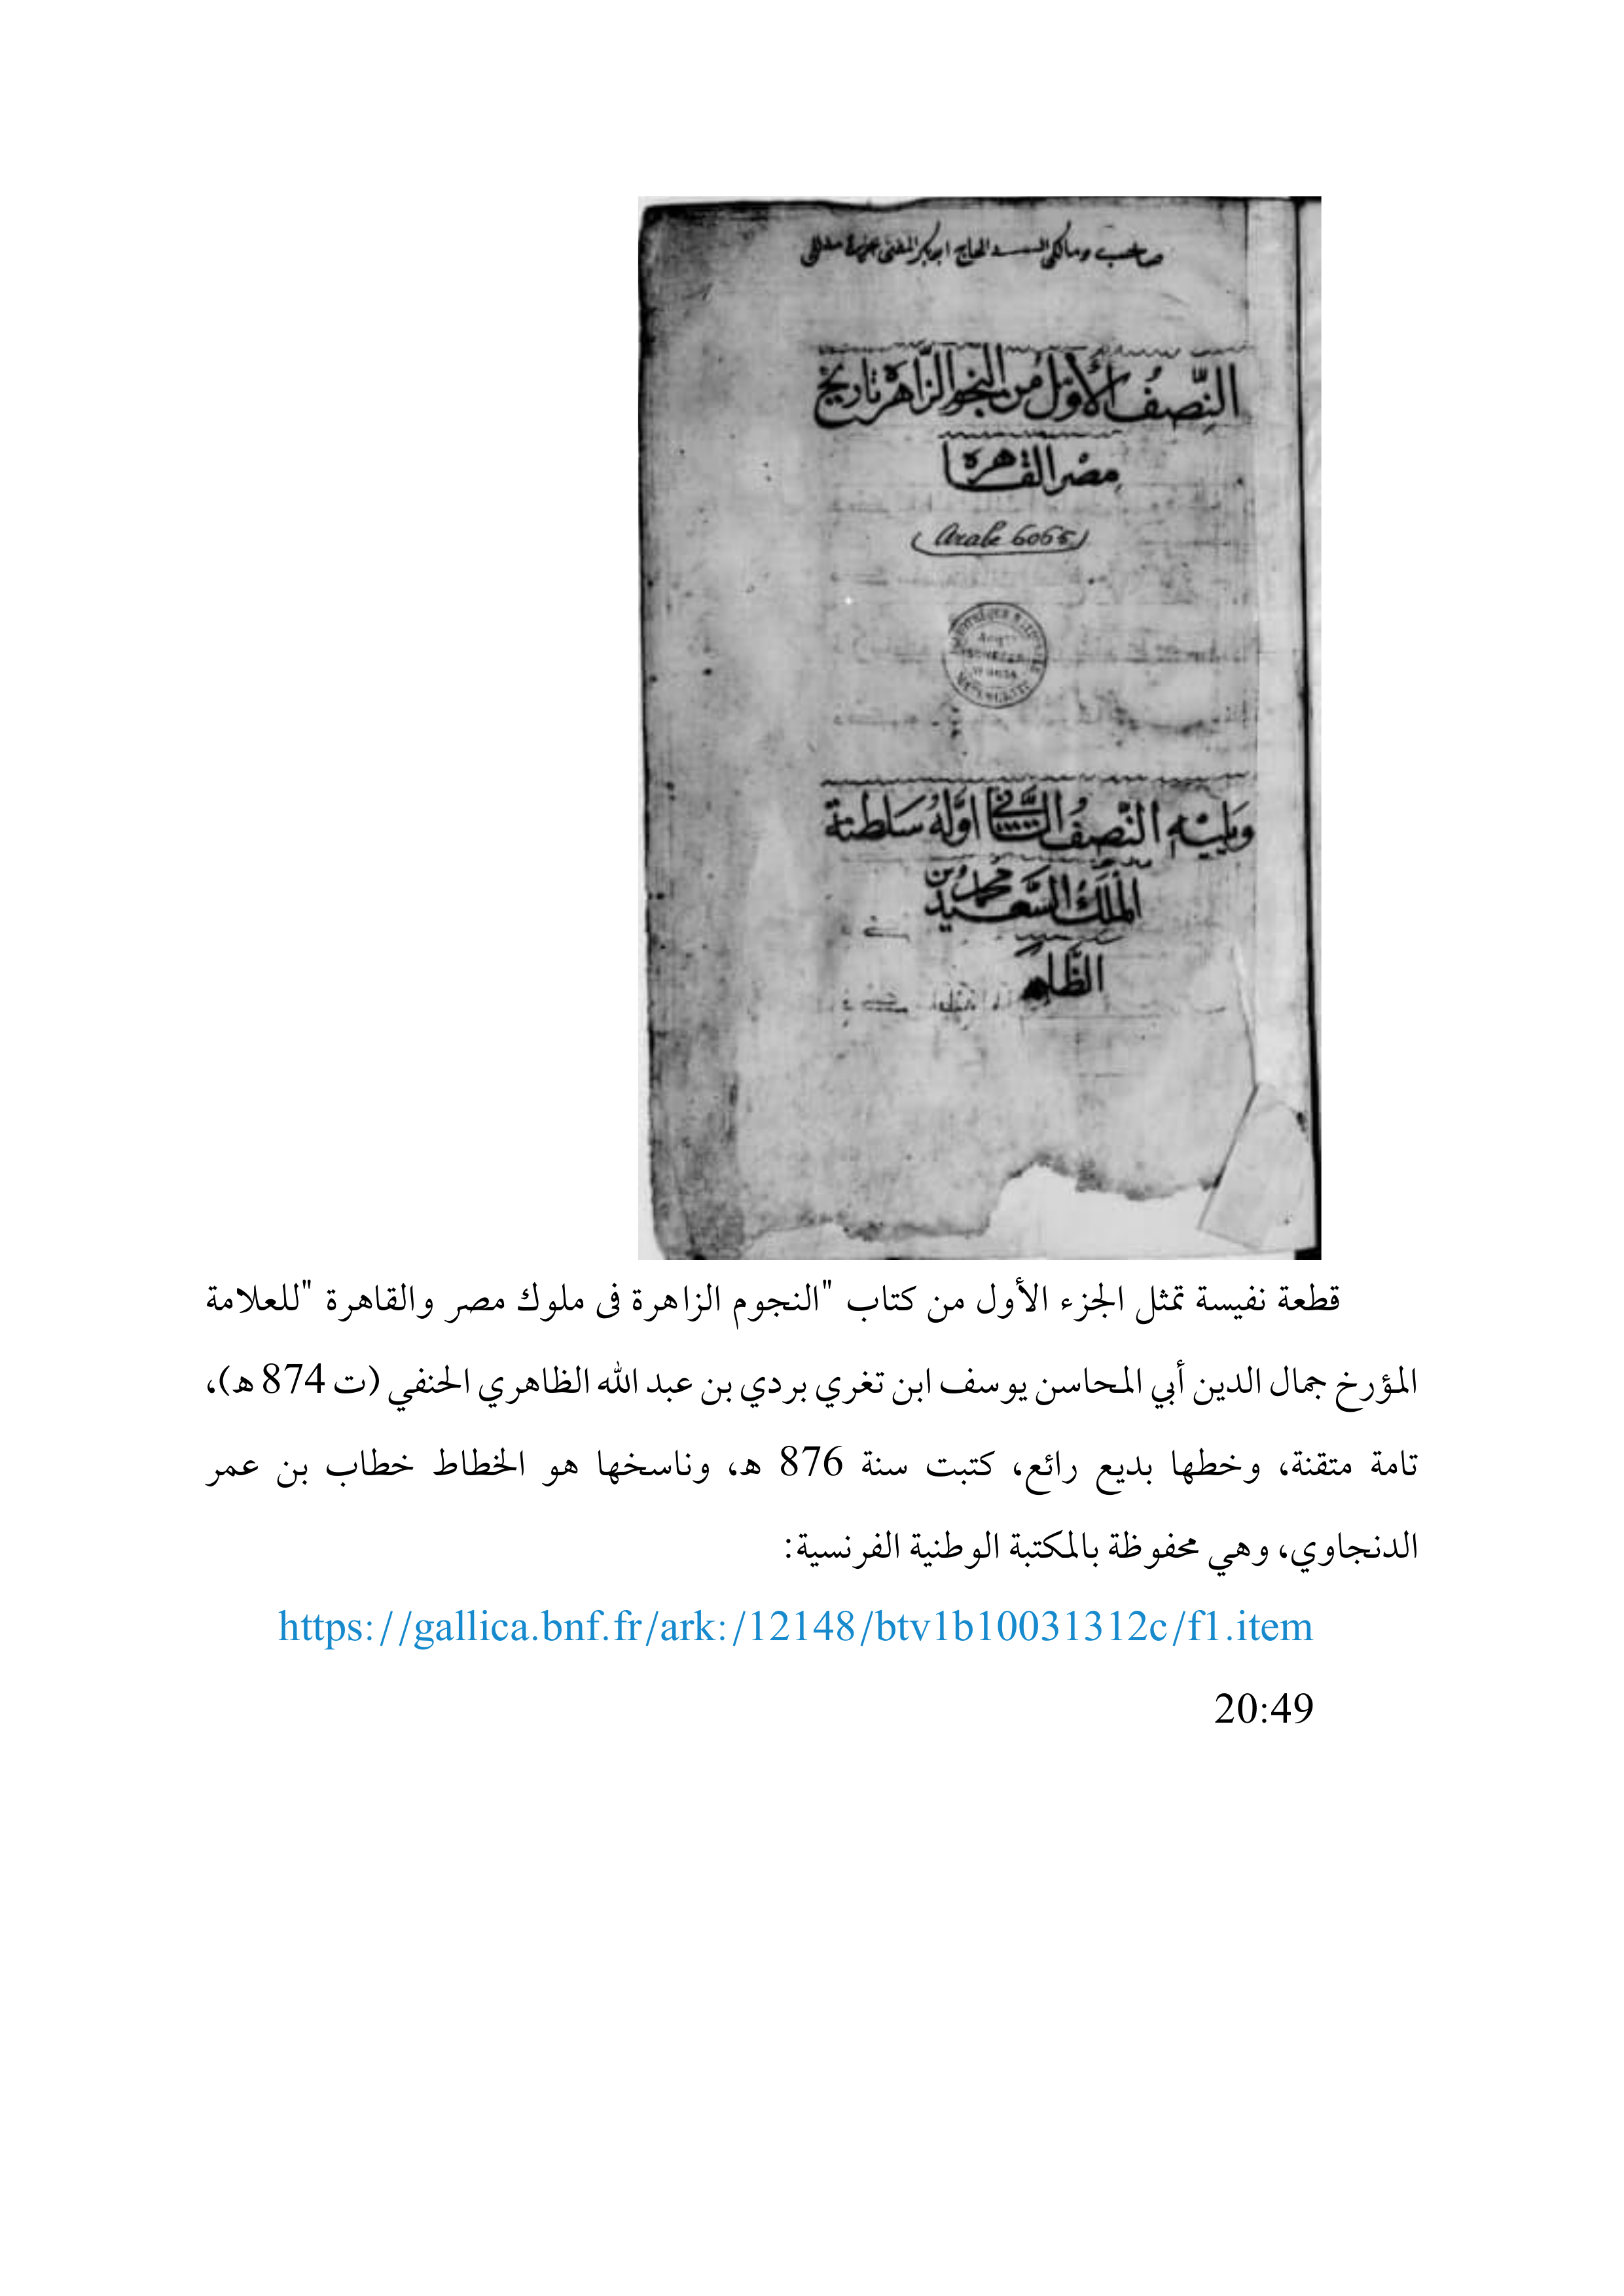 صاحب ومالكى السيد الحاج ابوبكر المفتى
النِّصفُ الأوَّل مِن النجوم الزَّاهرة تاريخ
مِصْر القاهرة
(Arabe 6065)
وَيليْهِ النّصفُ الثَّاني اوَّلهُ سَلطنة
الملك السَّعيد محمد بن
الظَّاهر
قطعة نفيسة تمثل الجزء الأول من كتاب "النجوم الزاهرة فى ملوك مصر والقاهرة "للعلامة
المؤرخ جمال الدين أبي المحاسن يوسف ابن تغري بردي بن عبد الله الظاهري الحنفي (ت 874 ه)،
تامة متقنة، وخطها بديع رائع، كتبت سنة 876 ه، وناسخها هو الخطاط خطاب بن عمر
الدنجاوي، وهي محفوظة بالمكتبة الوطنية الفرنسية:
https://gallica.bnf.fr/ark:/12148/btv1b10031312c/f1.item
20:49